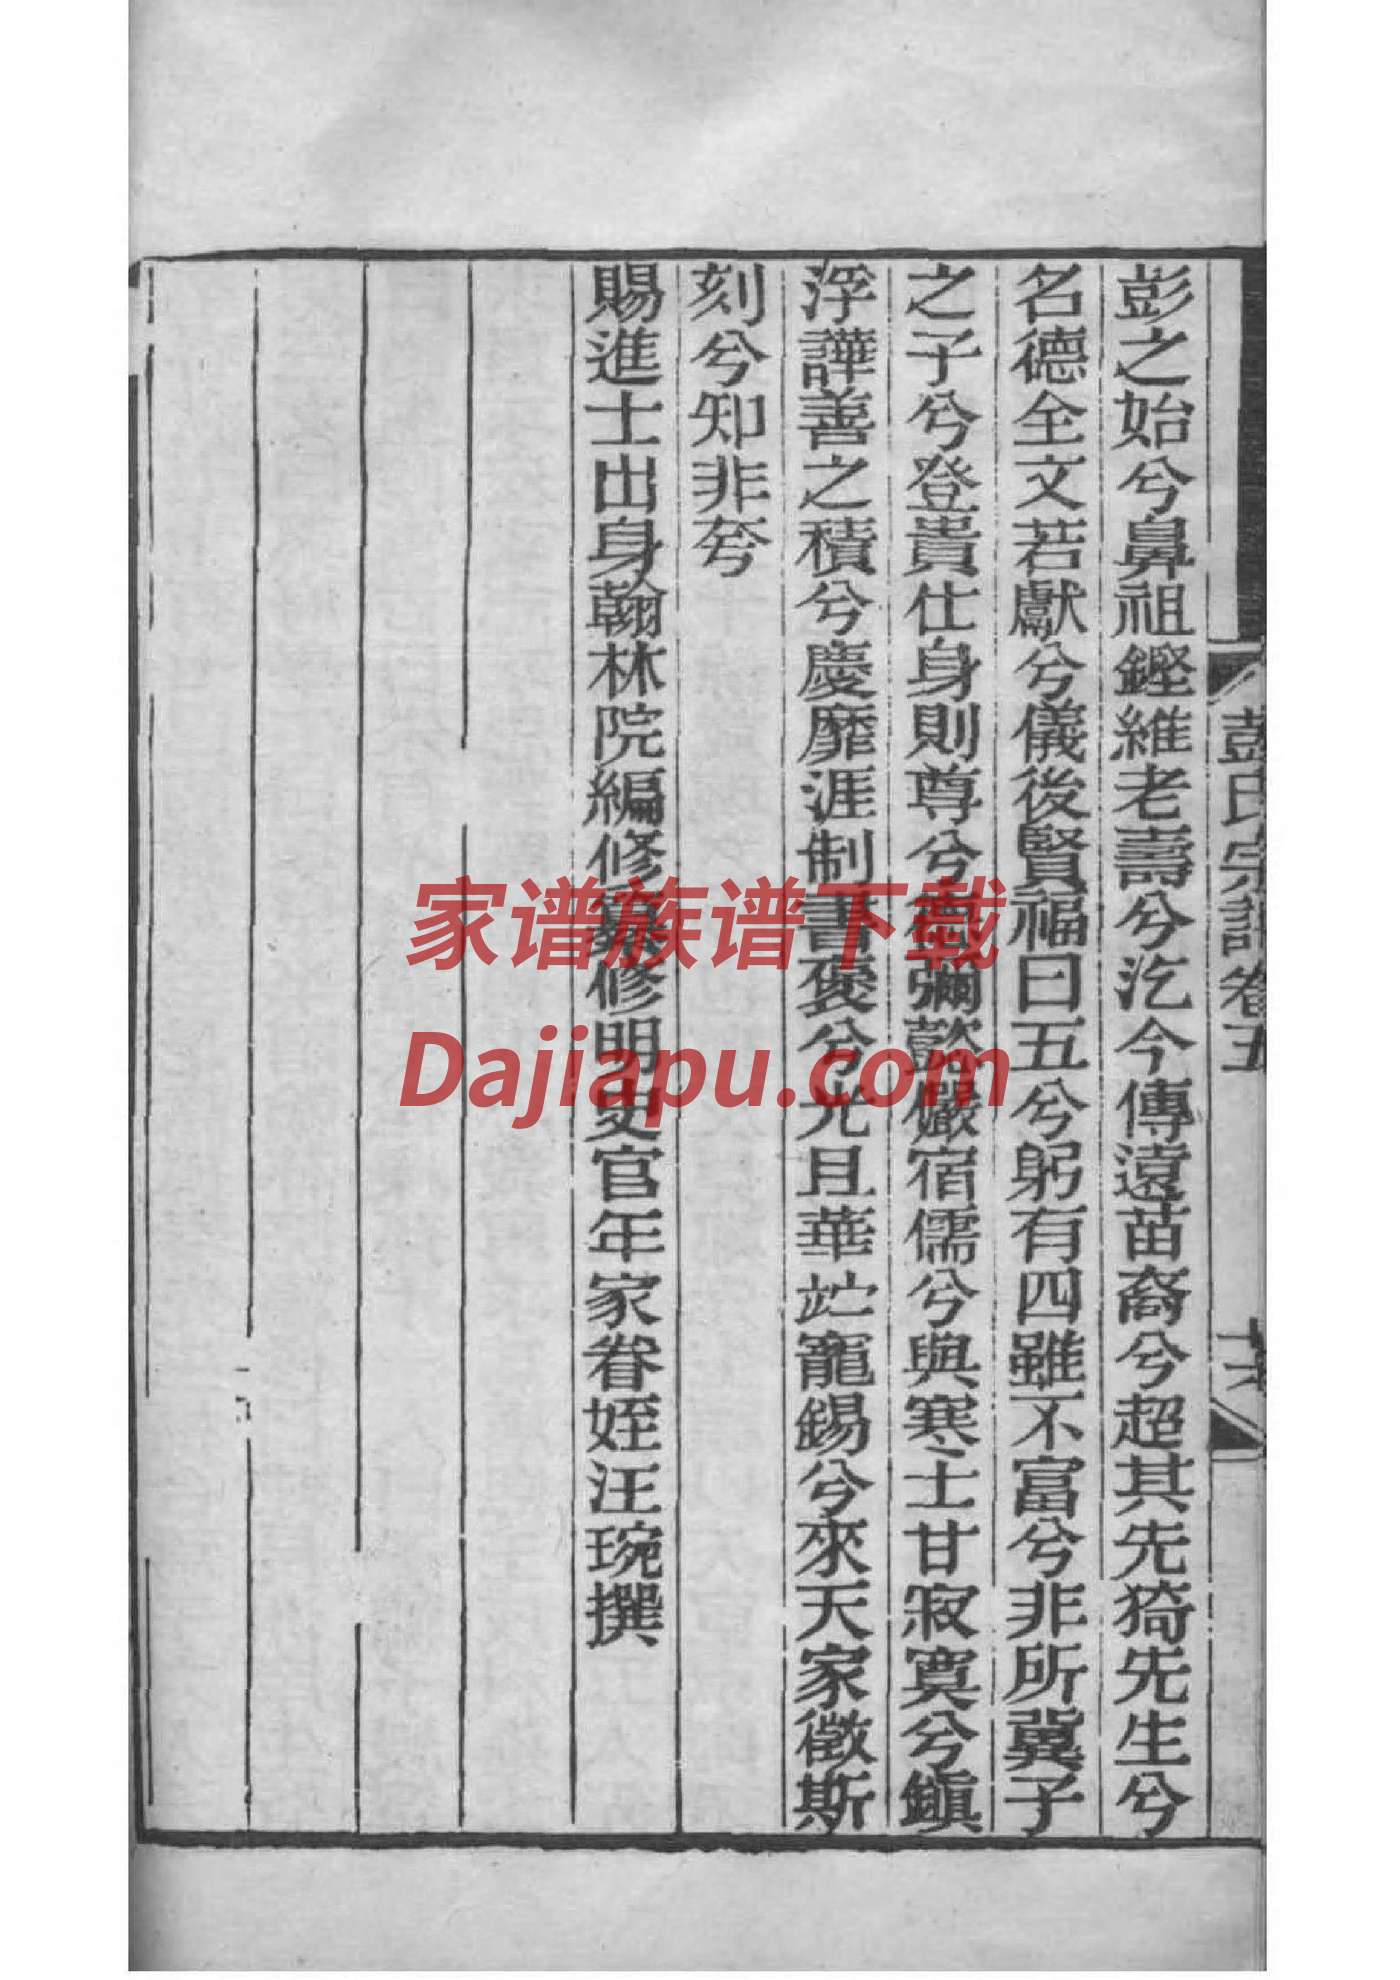 彭氏宗譜卷五
十六
彭之始兮鼻祖鏗維老壽兮汔今傳遠苗裔兮超其先猗先生兮
名德全文若獻兮儀後賢福曰五兮躬有四雖不富兮非所冀子
之子兮登貴仕身則尊兮彌嚴宿儒兮與寒士甘寂寞兮鎮
浮譁善之積兮慶靡涯制書褒兮光且華出寵錫兮來天家徵斯
刻兮知非夸
賜進士出身翰林院編修纂修明史官年家眷姪汪琬撰
家谱族谱下载
Dajiapu.com